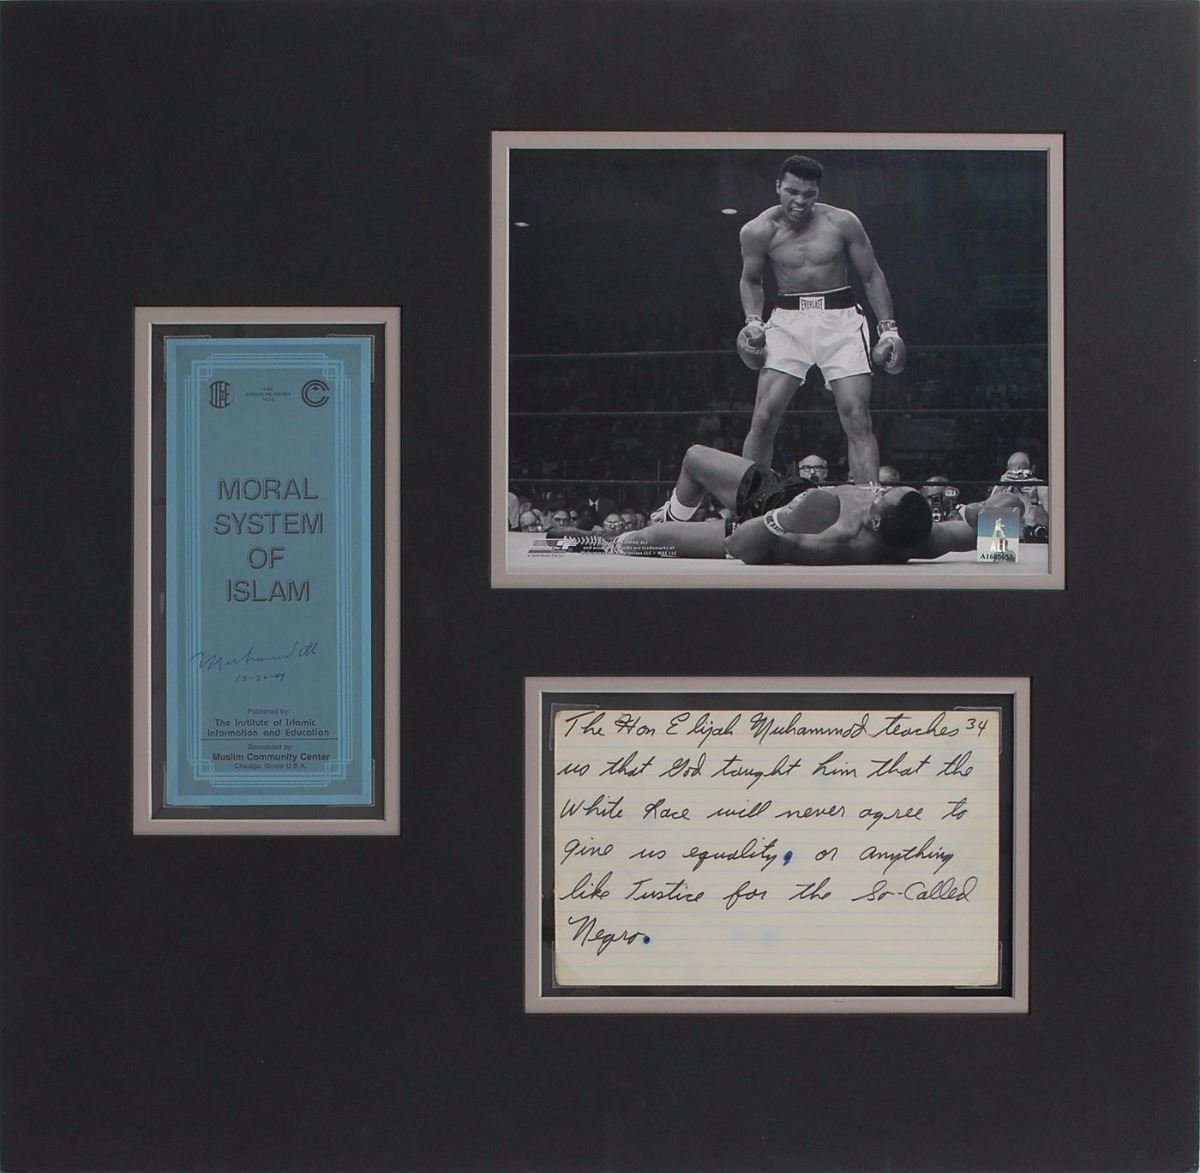 I & E
BROCHURE SERIES
NO.6
MORAL
SYSTEM
OF
ISLAM
Muhammad Ali
12-26-89
Published by:
The Institute of Islamic
Information and Education
Sponsored by
Muslim Community Center
Chicago, Illinois U.S.A.
EVERLAST
ALI
The Hon Elijah Muhammad teaches 34
us that God taught him that the
White Race will never agree to
give us equality, or anything
like Justice for the So-Called
Negro.